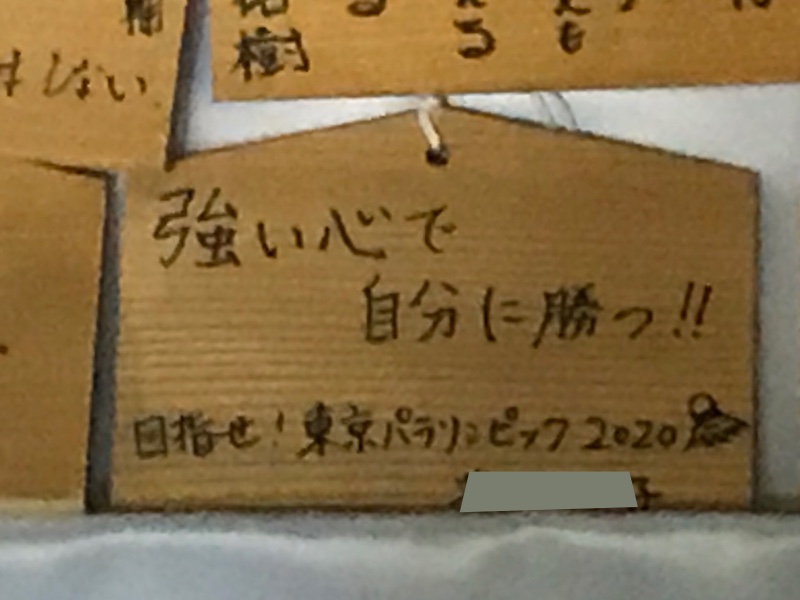 樹
しない
強い心で
自分に勝つ!!
目指せ!東京パラリンピック2020